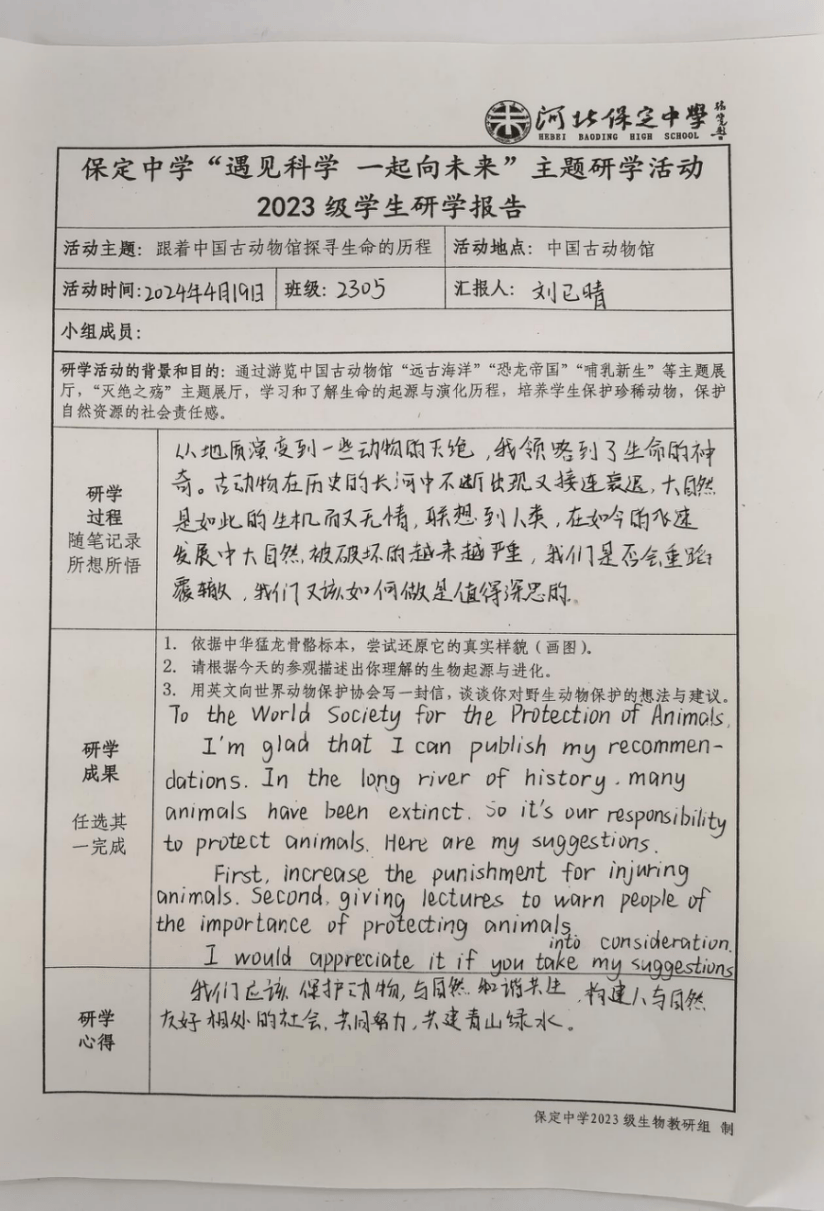 河北保定中學
HEBEI BAODING HIGH SCHOOL
保定中学“遇见科学 一起向未来”主题研学活动
2023 级学生研学报告
活动主题：跟着中国古动物馆探寻生命的历程 活动地点：中国古动物馆
活动时间：2024年4月19日 班级：2305 汇报人：刘已晴
小组成员：
研学活动的背景和目的：通过游览中国古动物馆“远古海洋”“恐龙帝国”“哺乳新生”等主题展
厅，“灭绝之殇”主题展厅，学习和了解生命的起源与演化历程，培养学生保护珍稀动物，保护
自然资源的社会责任感。
研学
过程
随笔记录
所想所悟
从地质演变到一些动物的灭绝，我领略到了生命的神
奇。古动物在历史的长河中不断出现又接连衰退，大自然
是如此的生机而又无情，联想到人类，在如今的飞速
发展中大自然被破坏的越来越严重，我们是否会重蹈
覆辙，我们又该如何做是值得深思的。
研学
成果
任选其
一完成
1. 依据中华猛龙骨骼标本，尝试还原它的真实样貌（画图）。
2. 请根据今天的参观描述出你理解的生物起源与进化。
3. 用英文向世界动物保护协会写一封信，谈谈你对野生动物保护的想法与建议。
To the World Society for the Protection of Animals,
I'm glad that I can publish my recommen-
dations. In the long river of history, many
animals have been extinct. So it's our responsibility
to protect animals. Here are my suggestions.
First, increase the punishment for injuring
animals. Second, giving lectures to warn people of
the importance of protecting animals
I would appreciate it if you take my suggestions
into consideration.
研学
心得
我们应该保护动物，与自然和谐共生，构建人与自然
友好相处的社会，共同努力，共建青山绿水。
保定中学2023 级生物教研组 制